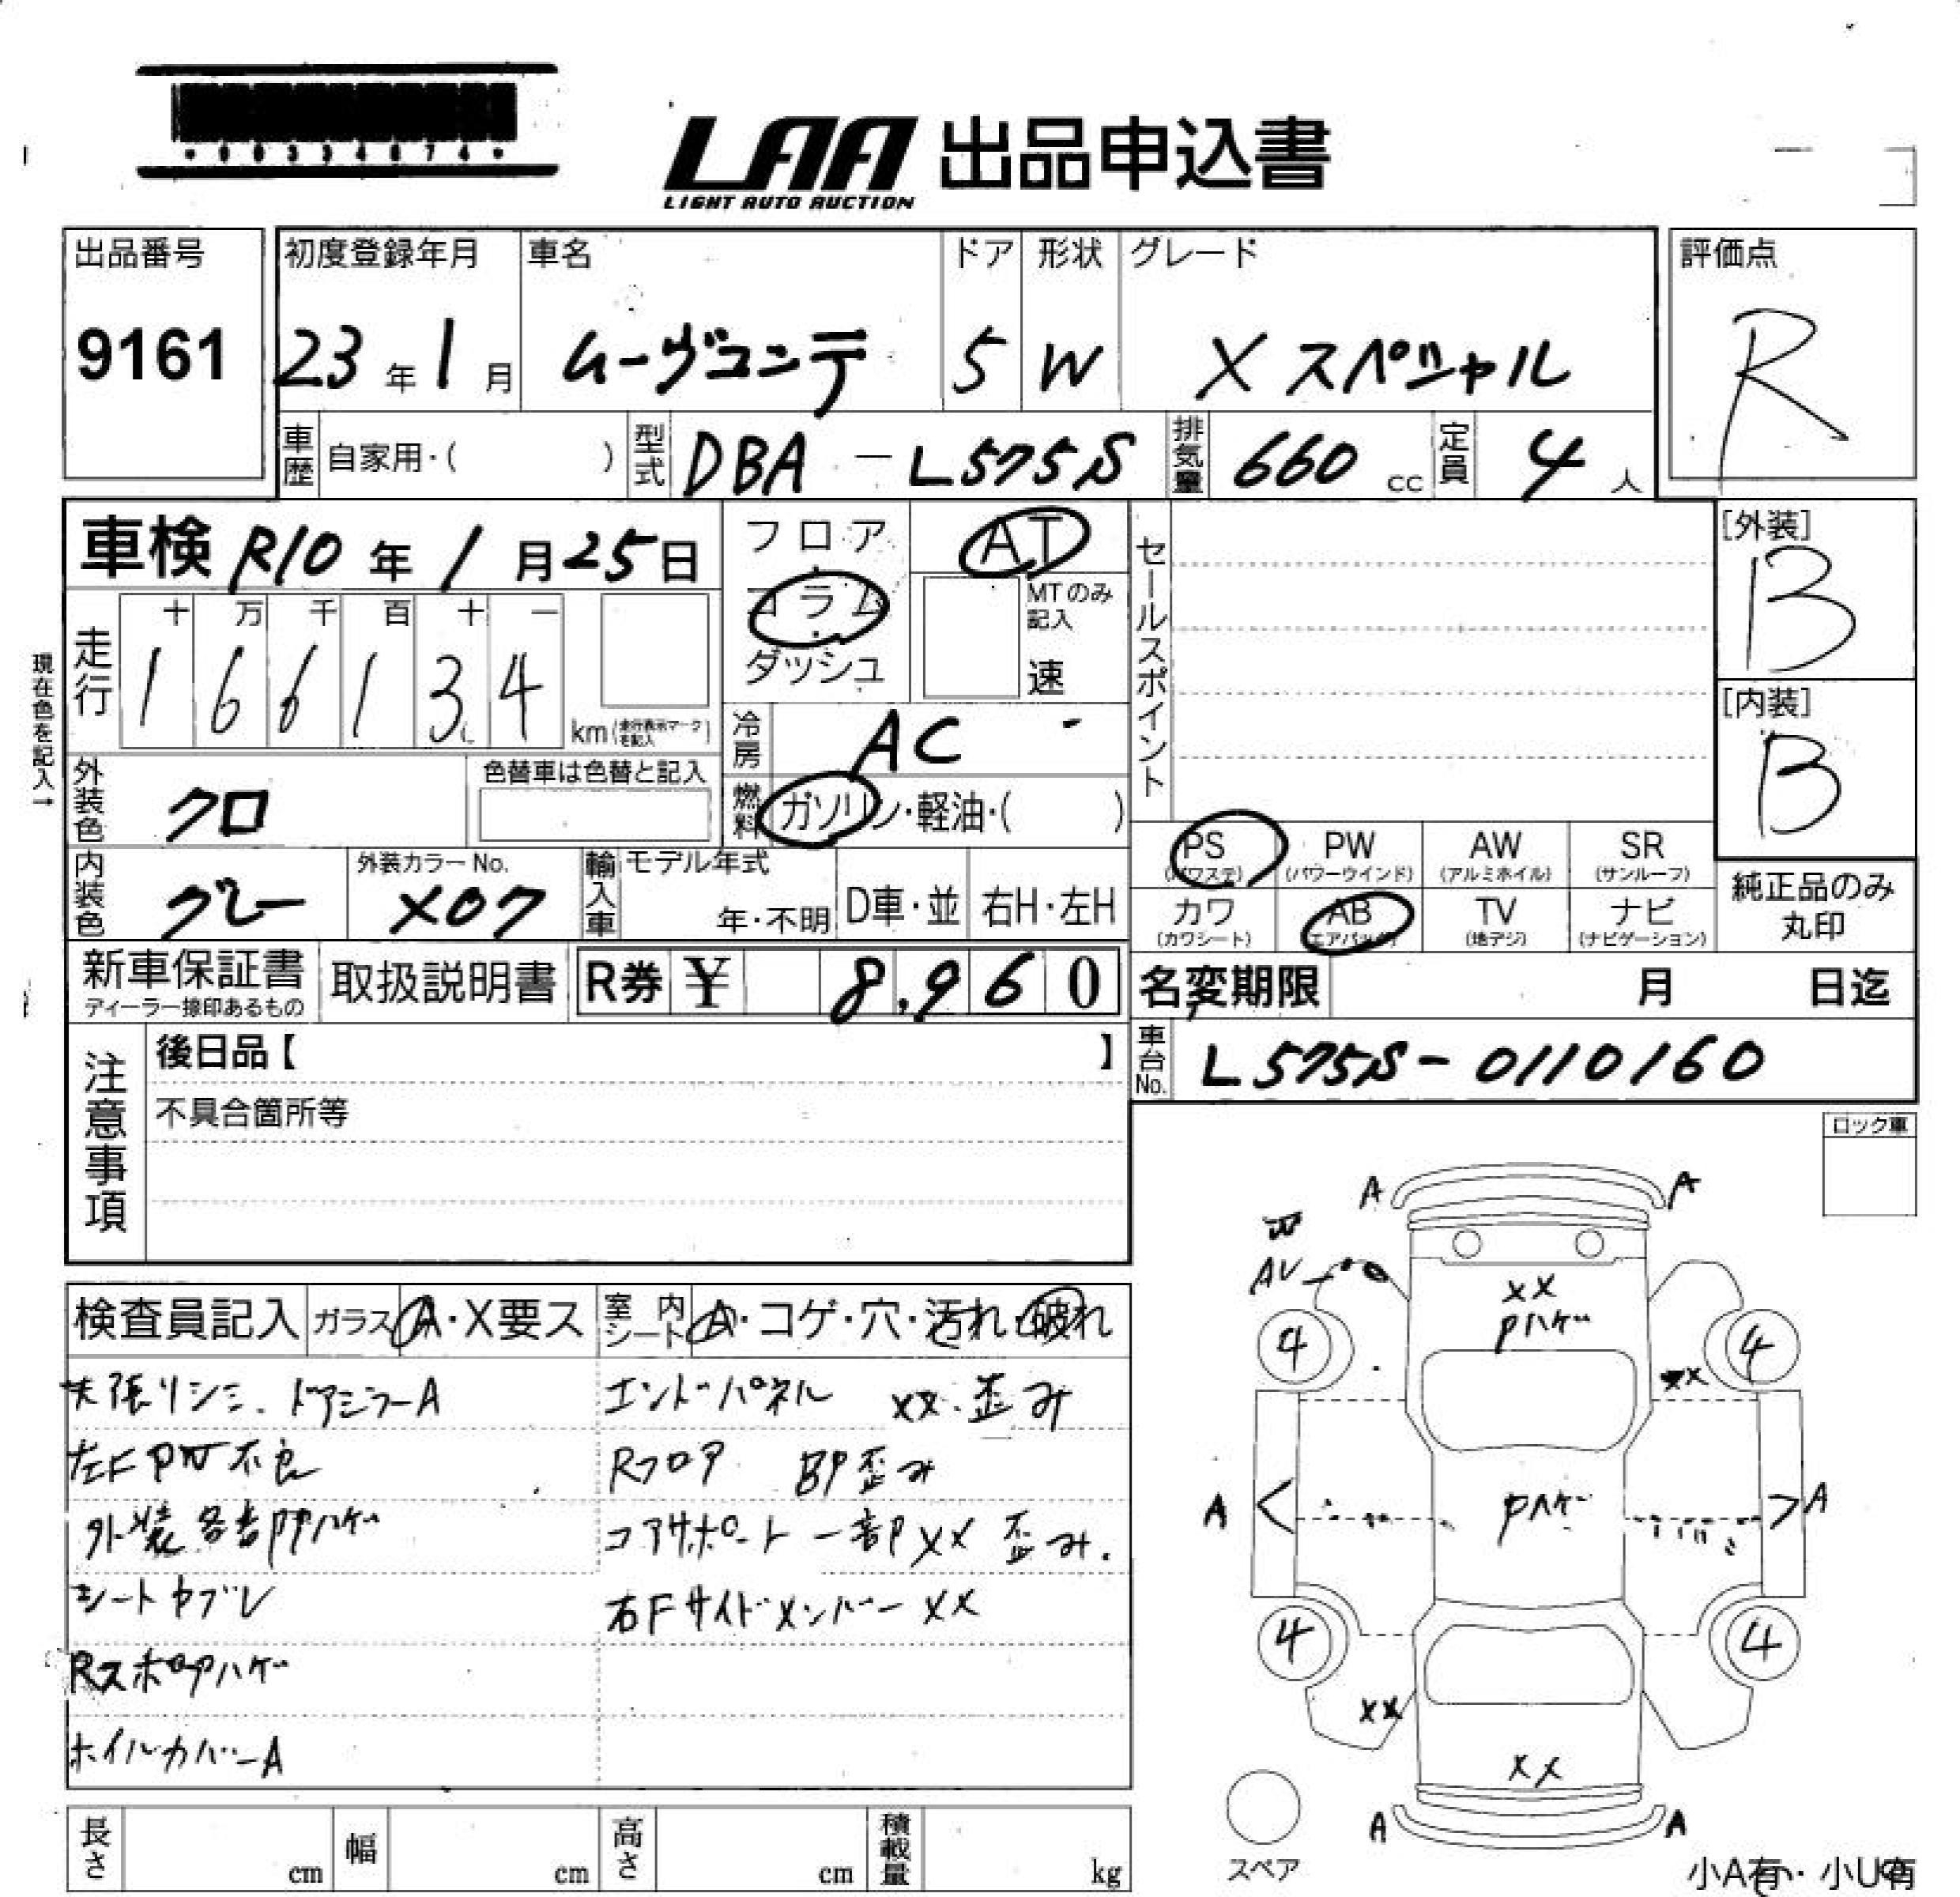 •00334674•
LAA 出品申込書
LIGHT AUTO AUCTION
出品番号 9161
初度登録年月 23年1月
車名 ムーヴコンテ
ドア 5
形状 W
グレード X スペシャル
評価点 R
車歴 自家用・( )
型式 DBA-L575S
排気量 660 cc
定員 4人
車検 R10年1月25日
フロア・コラム・ダッシュ
AT
MTのみ記入 速
セールスポイント
[外装] B
現在色を記入→
走行 十万千百十一
166134 km (走行表示マークを記入)
[内装] B
冷房 AC
外装色 クロ
色替車は色替と記入
燃料 ガソリン・軽油・( )
PS (パワステ) PW (パワーウインド) AW (アルミホイル) SR (サンルーフ)
内装色 グレー
外装カラーNo. X07
輸入車 モデル年式 年・不明 D車・並 右H・左H
カワ (カワシート) AB (エアバッグ) TV (地デジ) ナビ (ナビゲーション)
純正品のみ丸印
新車保証書 ディーラー捺印あるもの
取扱説明書
R券 ¥ 8,960
名変期限 月 日迄
注意事項
後日品【 】
車台No. L575S-0110160
不具合箇所等
ロック車
検査員記入 ガラス A・X要ス 室内シート A・コゲ・穴・汚れ・破れ
天張リシミ. ドアミラーA エンドパネル XX.歪み
左F PW不良 Rフロア BP歪み
外装各部PPハゲ コアサポート一部XX 歪み.
シートヤブレ 右Fサイドメンバー XX
RスポPハゲ
ホイルカバーA
A A
AV
XX
Pハゲ
4 4
XX
A Pハゲ A
4 4
XX
XX
A A
スペア
小A有・小U有
長さ cm 幅 cm 高さ cm 積載量 kg